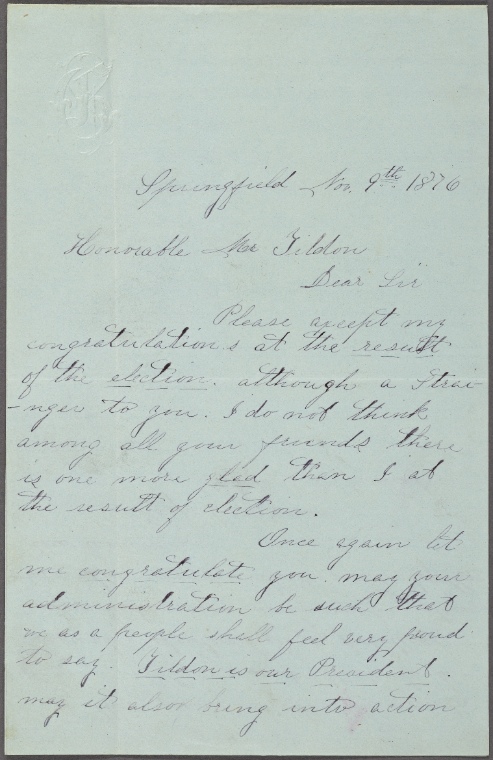 Springfield Nov. 9th 1876
Honorable Mr Tildon
Dear Sir
Please axcept my
congratulations at the result
of the election. although a Stra-
-nger to you. I do not think
among all your friends there
is one more glad than I at
the result of election.
Once again let
me congratulate you. may your
administration be such that
we as a people shall feel very proud
to say. Tildon is our President.
may it also bring into action